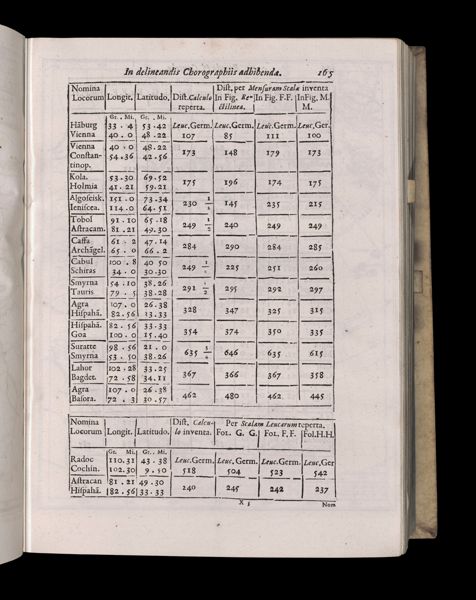 In delineandis Chorographiis adhibenda. 165
Nomina Locorum | Longit. | Latitudo. | Dist. Calculo reperta. | Dist. per Mensuram Scalæ inventa
In Fig. Rectilinea. | In Fig. F.F. | In Fig. M. M.
Gr. Mi. | Gr. Mi.
Hāburg 33 . 4 53 . 42 Leuc. Germ. Leuc. Germ. Leuc. Germ. Leuc, Ger.
Vienna 40 . 0 48 . 22 107 85 111 100
Vienna 40 . 0 48 . 22
Constan- 54 . 36 42 . 56 173 148 179 173
tinop.
Kola. 53 . 30 69 . 52
Holmia 41 . 21 59 . 21 175 196 174 175
Algofeisk. 151 . 0 73 . 34
Ieniscea. 114 . 0 64 . 51 230 1/2 145 235 215
Tobol 91 . 10 65 . 18
Astracam. 81 . 21 49 . 30 249 1/2 240 249 249
Caffa 61 . 2 47 . 14
Archāgel. 65 . 0 66 . 2 284 290 284 285
Cabul 100 . 8 40 50
Schiras 34 . 0 30 . 30 249 225 251 260
Smyrna 54 . 10 38 . 26
Tauris 79 . 5 38 . 28 291 1/2 295 292 297
Agra 107 . 0 26 . 38
Hispahā. 82 . 56 33 . 33 328 347 325 315
Hispahā. 82 . 56 33 . 33
Goa 100 . 0 15 . 40 354 374 350 335
Suratte 98 . 56 21 . 0
Smyrna 53 . 50 38 . 26 635 646 635 615
Lahor 102 . 28 33 . 25
Bagdet. 72 . 58 34 . 11 367 366 367 358
Agra 107 . 0 26 . 38
Basora. 72 . 3 30 . 57 462 480 462 445
Nomina Locorum | Longit. | Latitudo. | Dist. Calculo inventa. | Per Scalam Leucarum reperta.
Fol. G. G. | Fol. F, F. | Fol. H.H.
Gr. Mi. | Gr. Mi.
Radoc 110 . 31 43 . 38 Leuc. Germ. Leuc. Germ. Leuc. Germ. Leuc, Ger
Cochin. 102 . 30 9 . 50 518 504 523 542
Astracan 81 . 21 49 . 30
Hispahā. 82 . 56 33 . 33 240 245 242 237
X 3 Nom